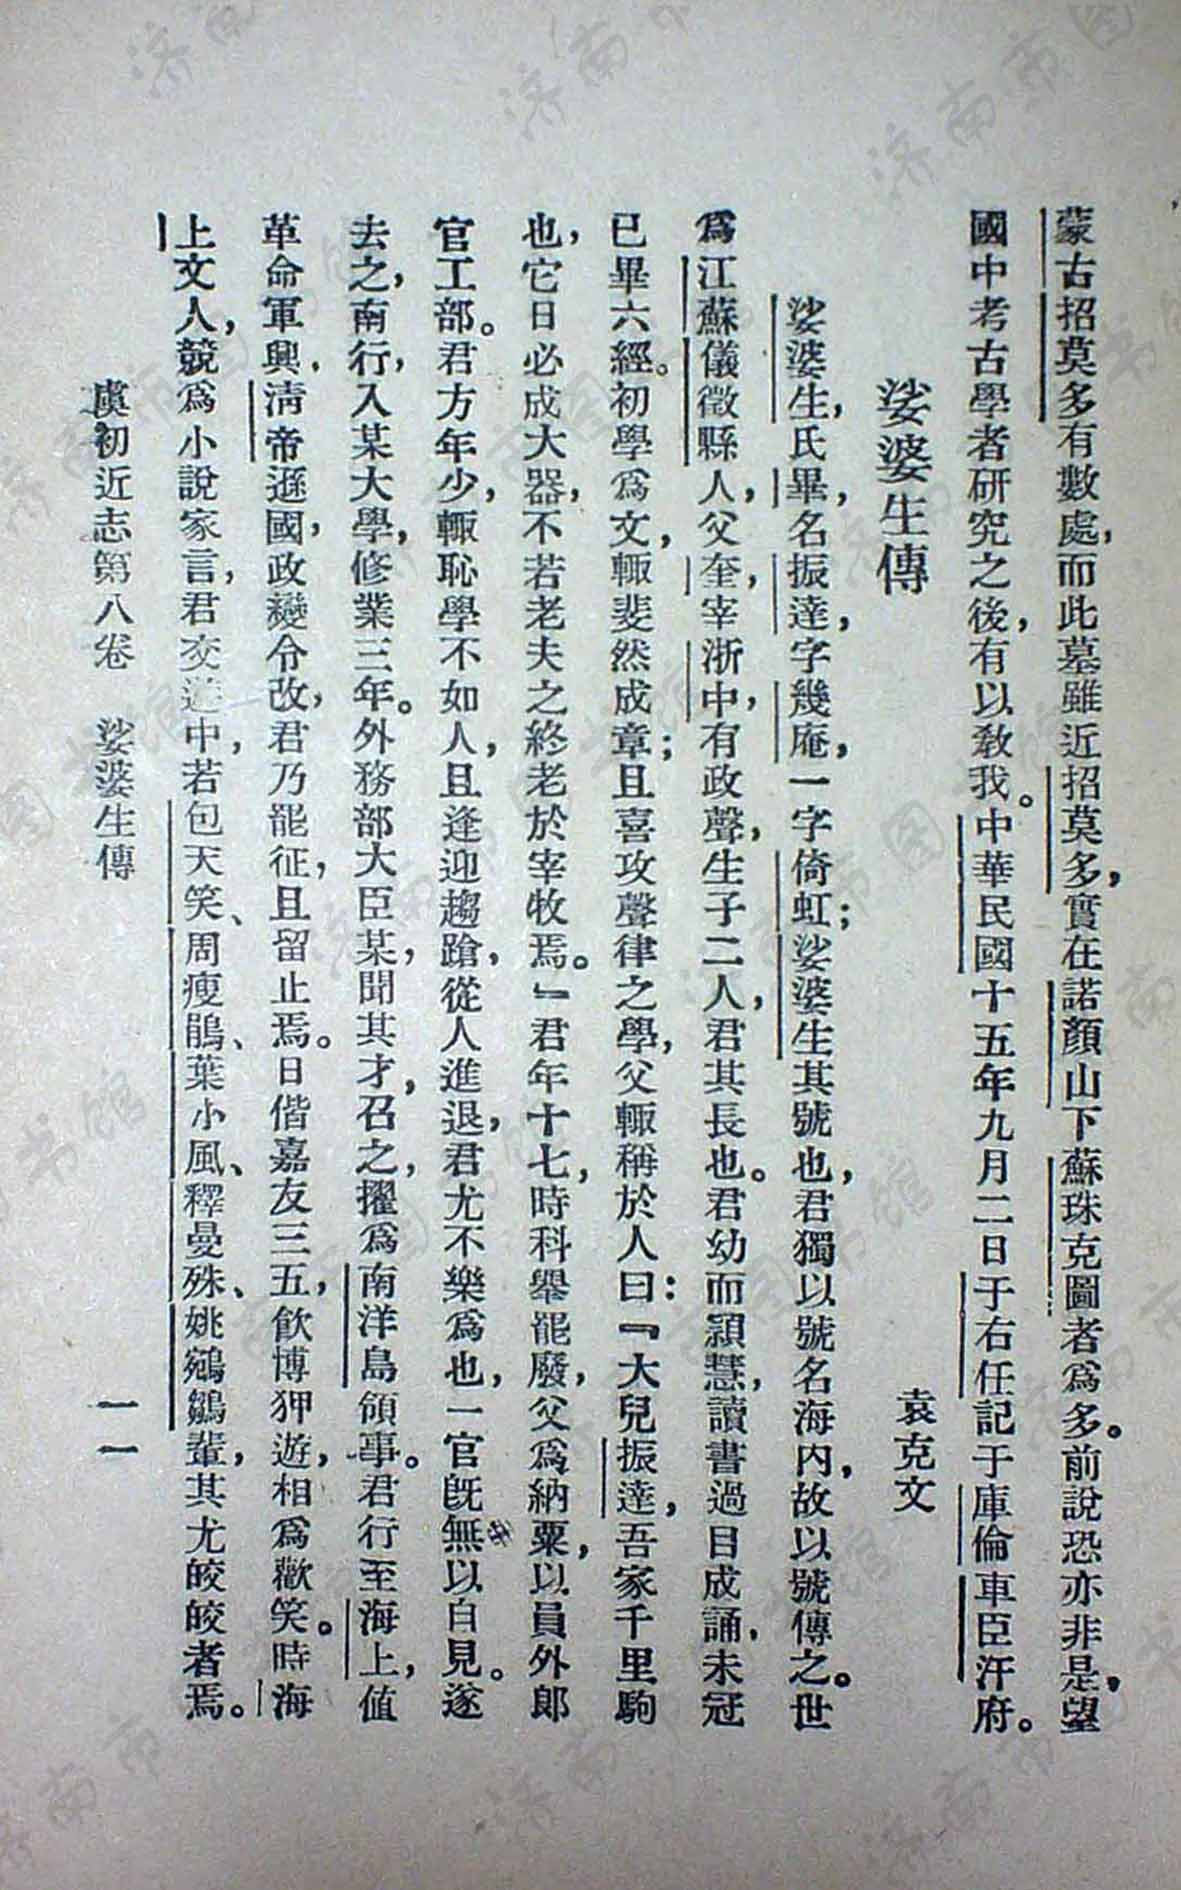 蒙古招莫多有數處，而此墓雖近招莫多，實在諾顏山下蘇珠克圖者爲多。前說恐亦非是，望
國中考古學者研究之後，有以敎我。中華民國十五年九月二日于右任記于庫倫車臣汗府。
娑婆生傳
袁克文
娑婆生，氏畢，名振達，字幾庵，一字倚虹；娑婆生其號也，君獨以號名海內，故以號傳之。世
爲江蘇儀徵縣人，父奎，宰浙中，有政聲，生子二人，君其長也。君幼而穎慧，讀書過目成誦，未冠
已畢六經。初學爲文，輒斐然成章；且喜攻聲律之學，父輒稱於人曰：『大兒振達，吾家千里駒
也，它日必成大器，不若老夫之終老於宰牧焉。』君年十七，時科舉罷廢，父爲納粟，以員外郎
官工部。君方年少，輒恥學不如人，且逢迎趨蹌，從人進退，君尤不樂爲也，一官旣無以自見。遂
去之，南行，入某大學，修業三年。外務部大臣某，聞其才，召之，擢爲南洋島領事。君行至海上，值
革命軍興，清帝遜國，政變令改，君乃罷征，且留止焉。日偕嘉友三五，飲博狎遊，相爲歡笑。時海
上文人，競爲小說家言，君交遊中，若包天笑、周瘦鵑、葉小風、釋曼殊、姚鵷鶵輩，其尤皎皎者焉。
虞初近志第八卷　娑婆生傳
一一
济南市图书馆